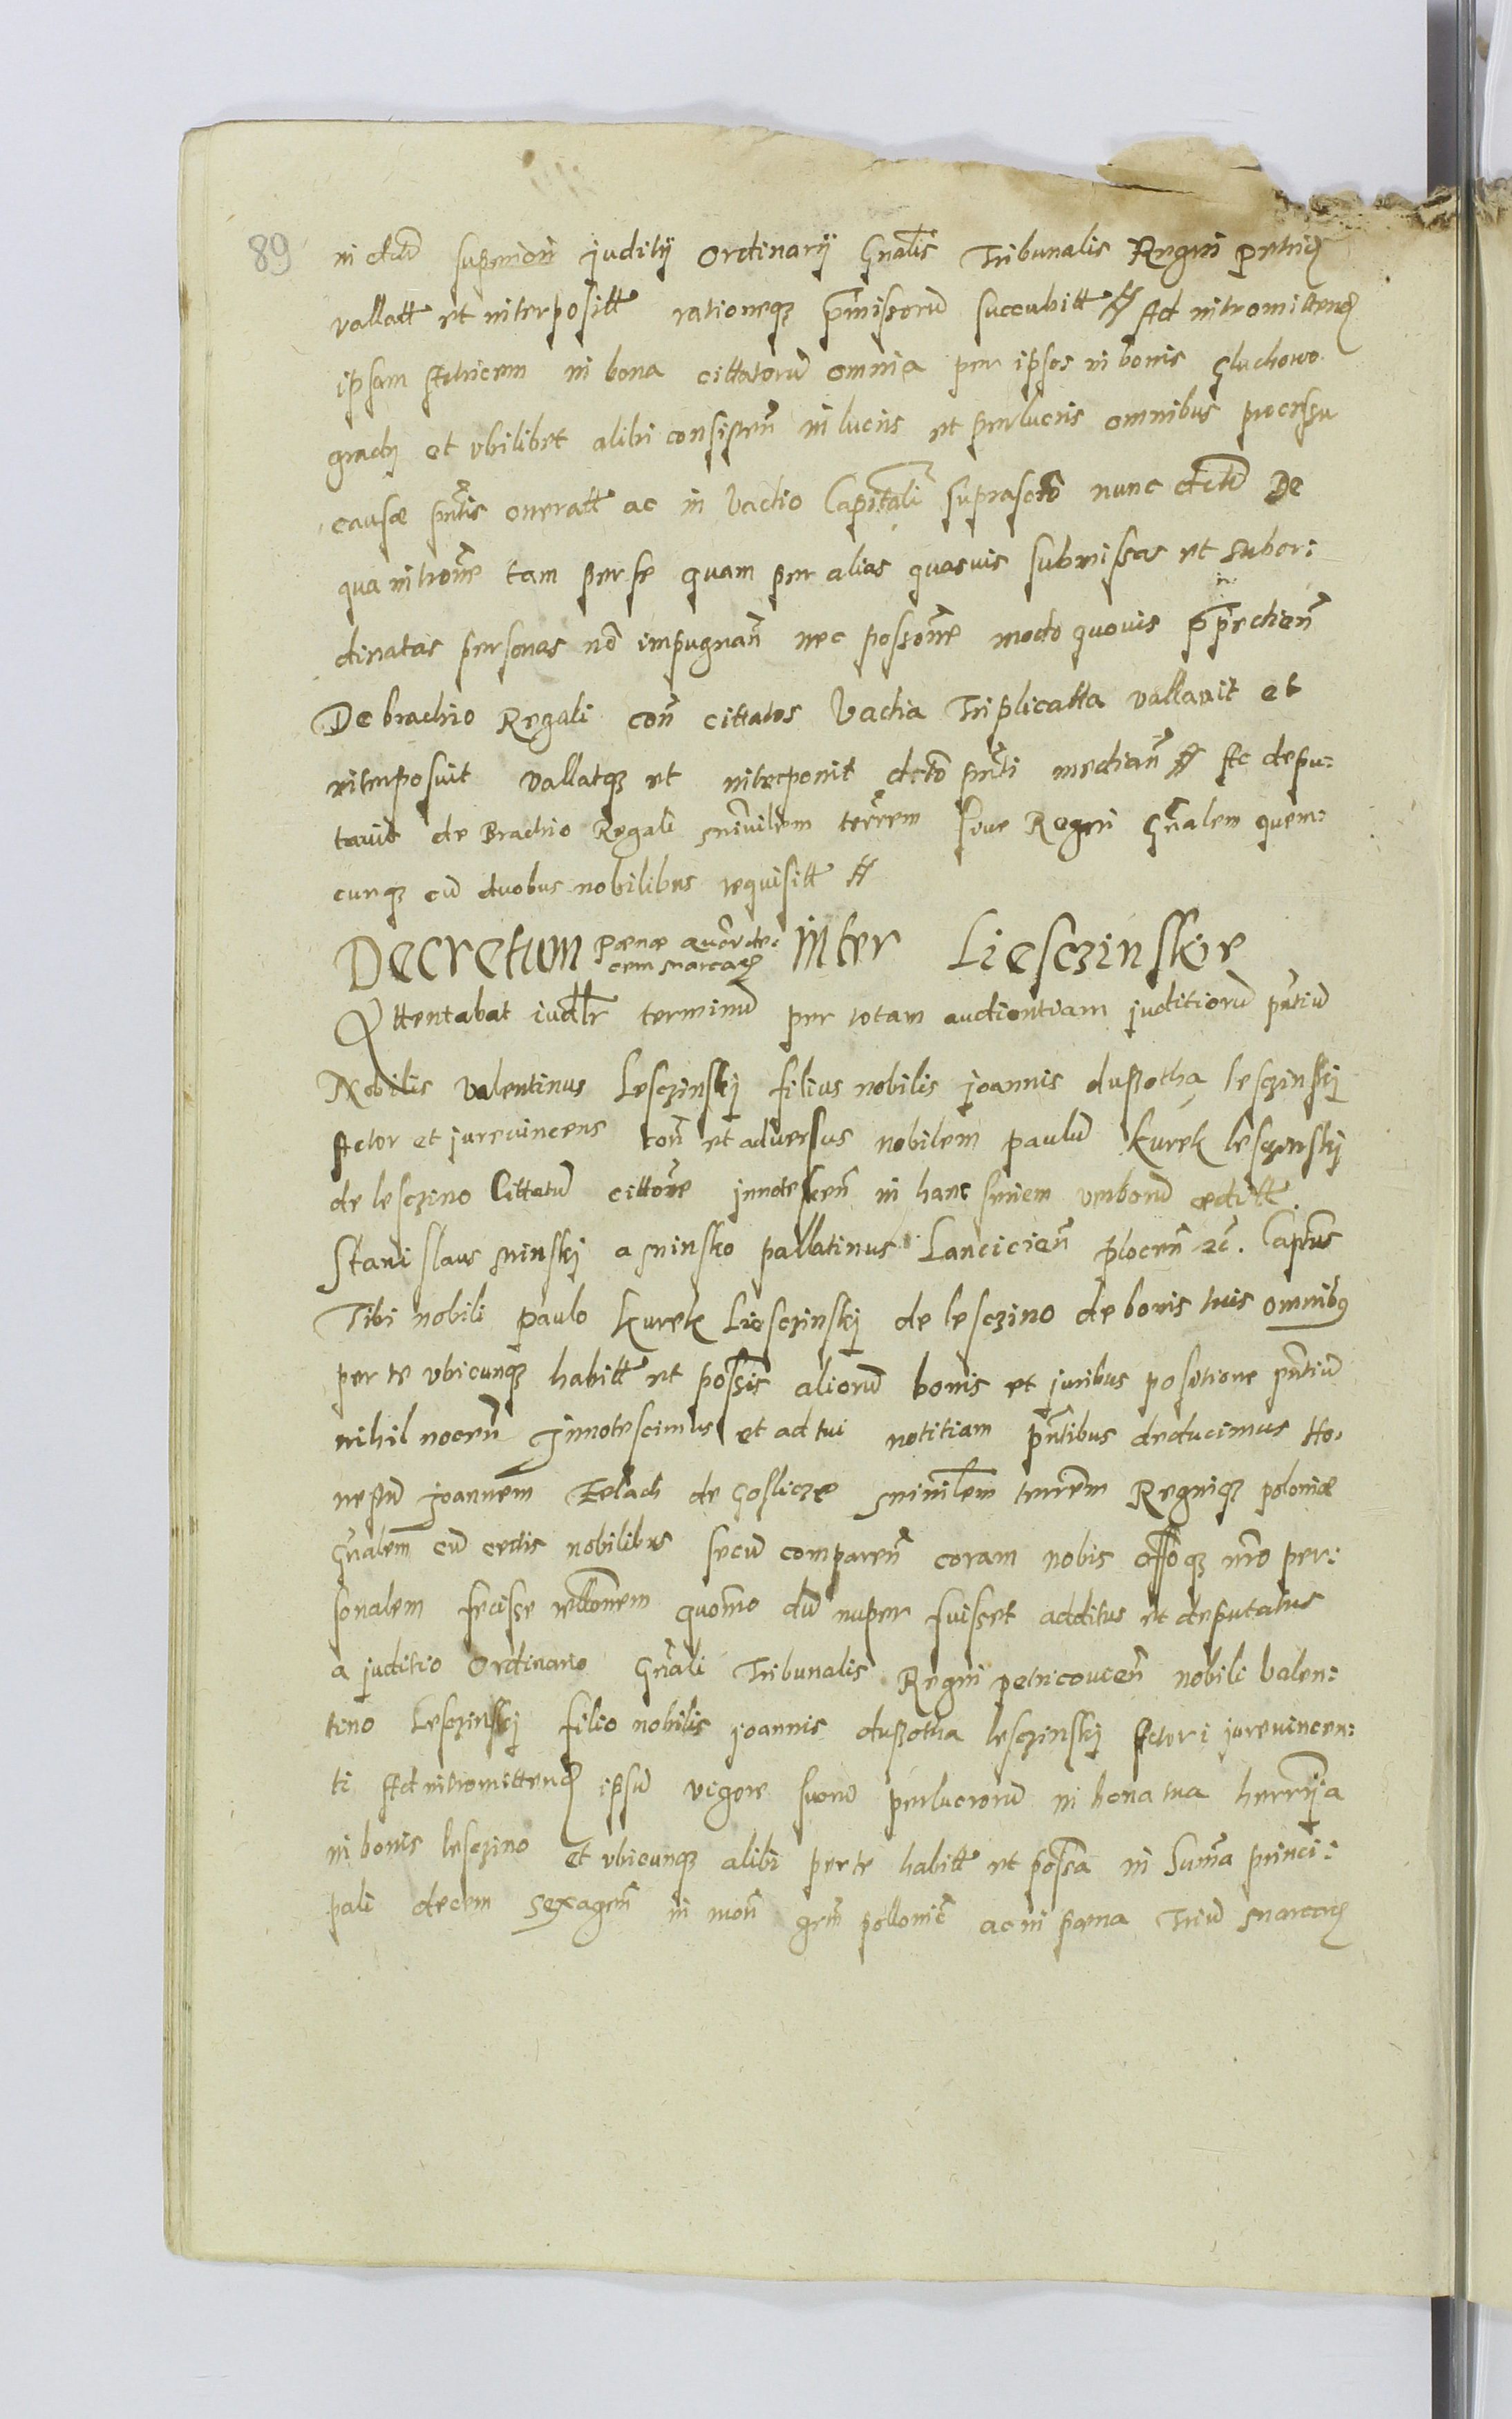 89
in dctũ superiori juditij Ordinarij Gnalis Tribunalis Regni petric
vallatt et interposítt rationeqz pmissorũ succubitt Ad intromittend
ipsam Actricem in bona cittatorũ omnia per ipsos in bonis Gluchowo
gnachi et vbilibet alibi consisten in lucris et perlucris omnibus processu
causæ pntis oneratt ac in vadio Capitali suprascto nunc dctũ De
qua introne tam per se quam per alias quasuis submissas et subor:
dinatas personas nõ impugnan nec possone modo quouis prpedien
De brachio Regali con cittatos vadia Triplicatta vallauit et
interposuit vallatqz et interponit dcto pnti median Ac depu:
tauit de Brachio Regali minrilem terrem siue Regni Gnalem quem:
cunqz cũ duobus nobilibus requisitt
Decretum pœnæ quatuorde:
cem marcar inter Liesczinskie
Attentabat iudlr terminũ per totam audientiam juditiorũ pntiũ
Nobilis valentinus Lesczinskj filius nobilis joannis dussotha lesczinskj
Actor et jureuincens con et aduersus nobilem paulũ Kurek lesczinskj
de lesczino Cittatũ cittone innotescen in hanc seriem verborũ æditt
Stanislaus minskj a minsko pallatinus Lancicien plocen zc. Capitus
Tibi nobili paulo Kurek Liesczinskj de lesczino de bonis tuis omnibq
per te vbicunqz habitt et possis aliorũ bonis et juribus positione pntiũ
nihil nocen Innotescimus et ad tui notitiam pntibus deducimus Ho.
nestũ joannem Zelach de Goslicze minrilem terrem Regniqz poloniæ
Gnalem cũ certis nobilibus secũ comparen coram nobis offoqz nro per:
sonalem fecisse rellonem quomo dũ nuper fuisset additus et deputatus
a juditio Ordinario Gnali Tribunalis Regni petricouien nobili Valen:
tino Lesczinskj filio nobilis joannis dussotha lesczinskj Actori jureuincen:
ti Ad intromittend ipsũ vigore suorũ perlucrorũ in bona tua herrria
in bonis lesczino et vbicunqz alibi per te habitt et possa in Suma princi:
pali decem sexagen in mon grm pollonic ac in pæna Triũ marcar